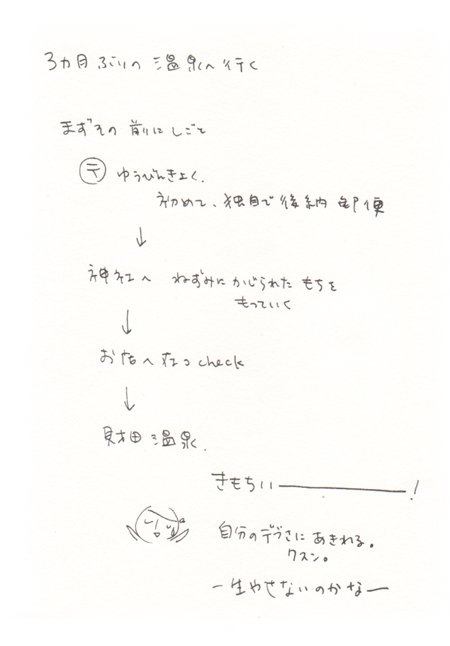 3カ月ぶりの温泉へ行く
まずその前にしごと
〒 ゆうびんきょく.
初めて、独自で後納郵便
↓
神社へ ねずみにかじられたもちを
もっていく
↓
お店へ在コcheck
↓
財田温泉.
きもちいー!
自分のデブさにあきれる。
クスン。
一生やせないのかなー